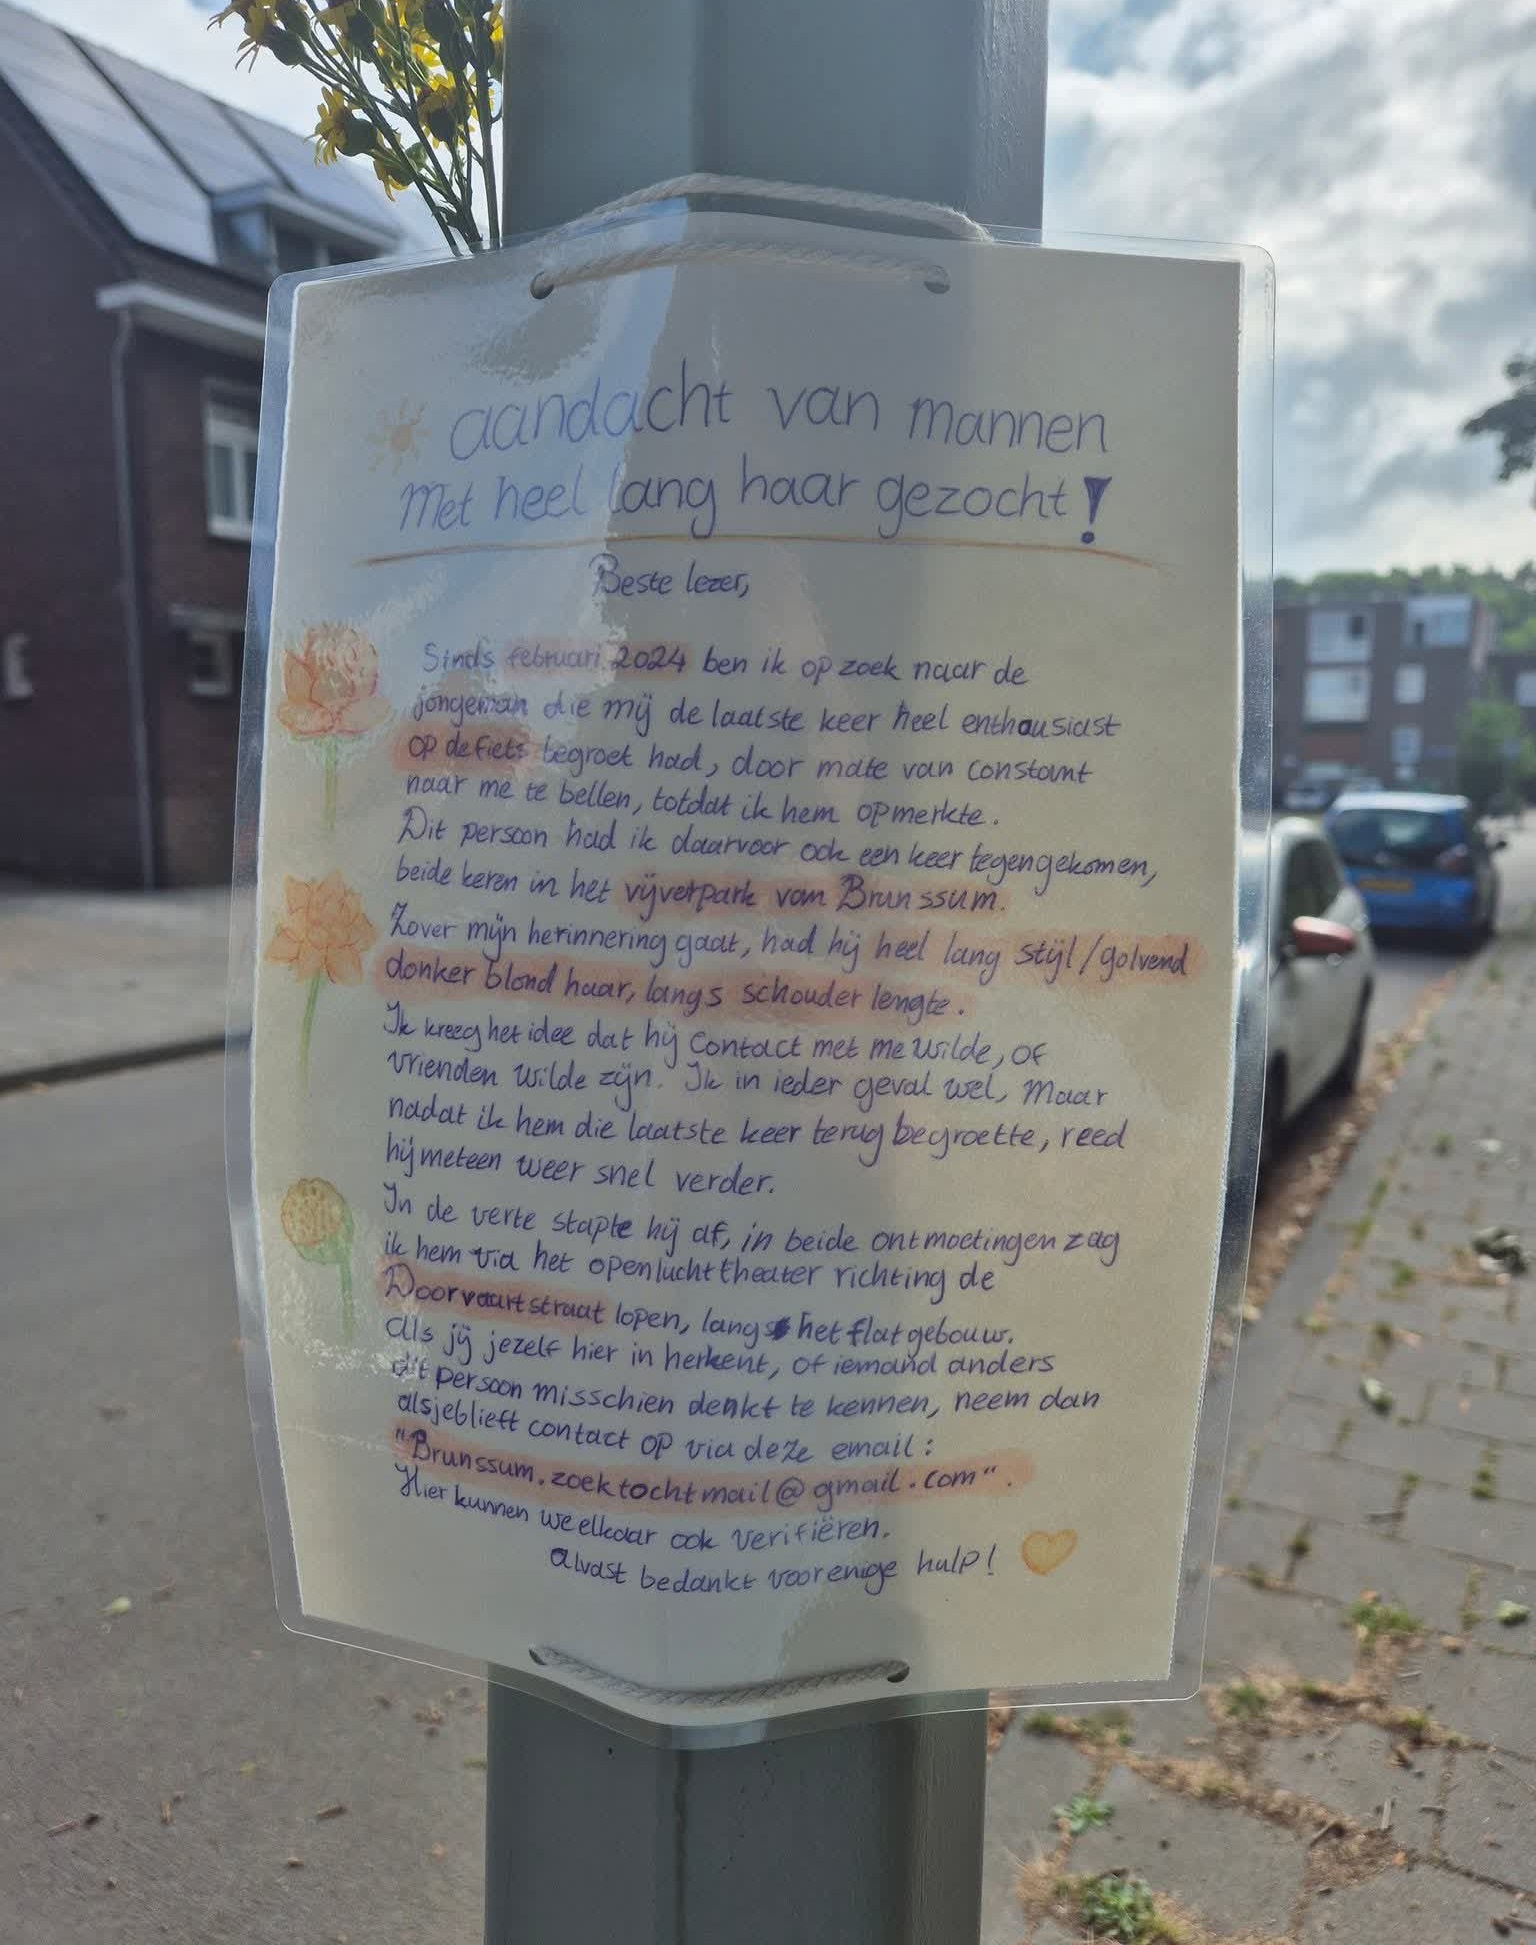 aandacht van mannen
Met heel lang haar gezocht!
Beste lezer,
Sinds februari 2024 ben ik op zoek naar de
jongeman die mij de laatste keer heel enthousiast
op de fiets begroet had, door mate van constant
naar me te bellen, totdat ik hem opmerkte.
Dit persoon had ik daarvoor ook een keer tegengekomen,
beide keren in het vijverpark van Brunssum.
Zover mijn herinnering gaat, had hij heel lang stijl/golvend
donker blond haar, langs schouder lengte.
Ik kreeg het idee dat hij contact met me wilde, of
vrienden wilde zijn. Ik in ieder geval wel, maar
nadat ik hem die laatste keer terug begroette, reed
hij meteen weer snel verder.
In de verte stapte hij af, in beide ontmoetingen zag
ik hem via het openluchttheater richting de
Doorvaartstraat lopen, langs het flatgebouw.
Als jij jezelf hier in herkent, of iemand anders
dit persoon misschien denkt te kennen, neem dan
alsjeblieft contact op via deze email:
"Brunssum.zoektochtmail@gmail.com".
Hier kunnen we elkaar ook verifiëren.
Alvast bedankt voor enige hulp!